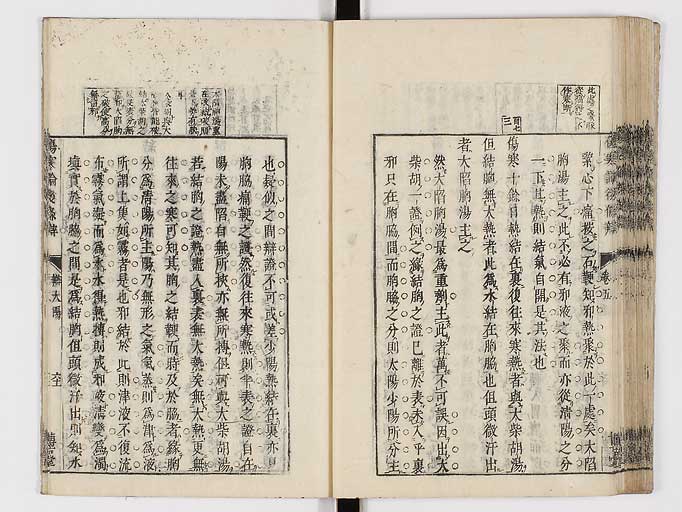 藥心下痛按之石鞕知邪熱聚於此一處矣大陷
胸湯主之此不必有邪液之聚而亦從清陽之分
一下其熱則結氣自開是其法也
傷寒十餘日熱結在裏復往來寒熱者與大柴胡湯
但結胸無大熱者此為水結在胸脇也但頭微汗出
者大陷胸湯主之
然大陷胸湯最為重劑主此者萬不可誤因出大
柴胡一證例之葢結胸之證已離於表悉入乎裏
邪只在胸脇間而胸脇之分則太陽少陽所分主
也疑似之間辯證不可或差少陽熱結在裏亦有
胸脇痛鞕之證然復往來寒熱則半表之證自在
陽未盡陷自無所挾亦無所搏但可與大柴胡湯
若結胸之證熱盡入裏表無大熱矣無大熱更無
往來之寒可知其胸之結鞕而時及於脇者緣胸
分為清陽所主陽乃無形之氣氣蒸則為津為液
所謂上焦如霧者是也邪結於此則津液不復流
布霧氣凝而為水水得熱搏則成邪液清變為濁
填實於胸脇之間是為結胸但頭微汗出則知水
傷寒論後條辨
卷五
辨太陽